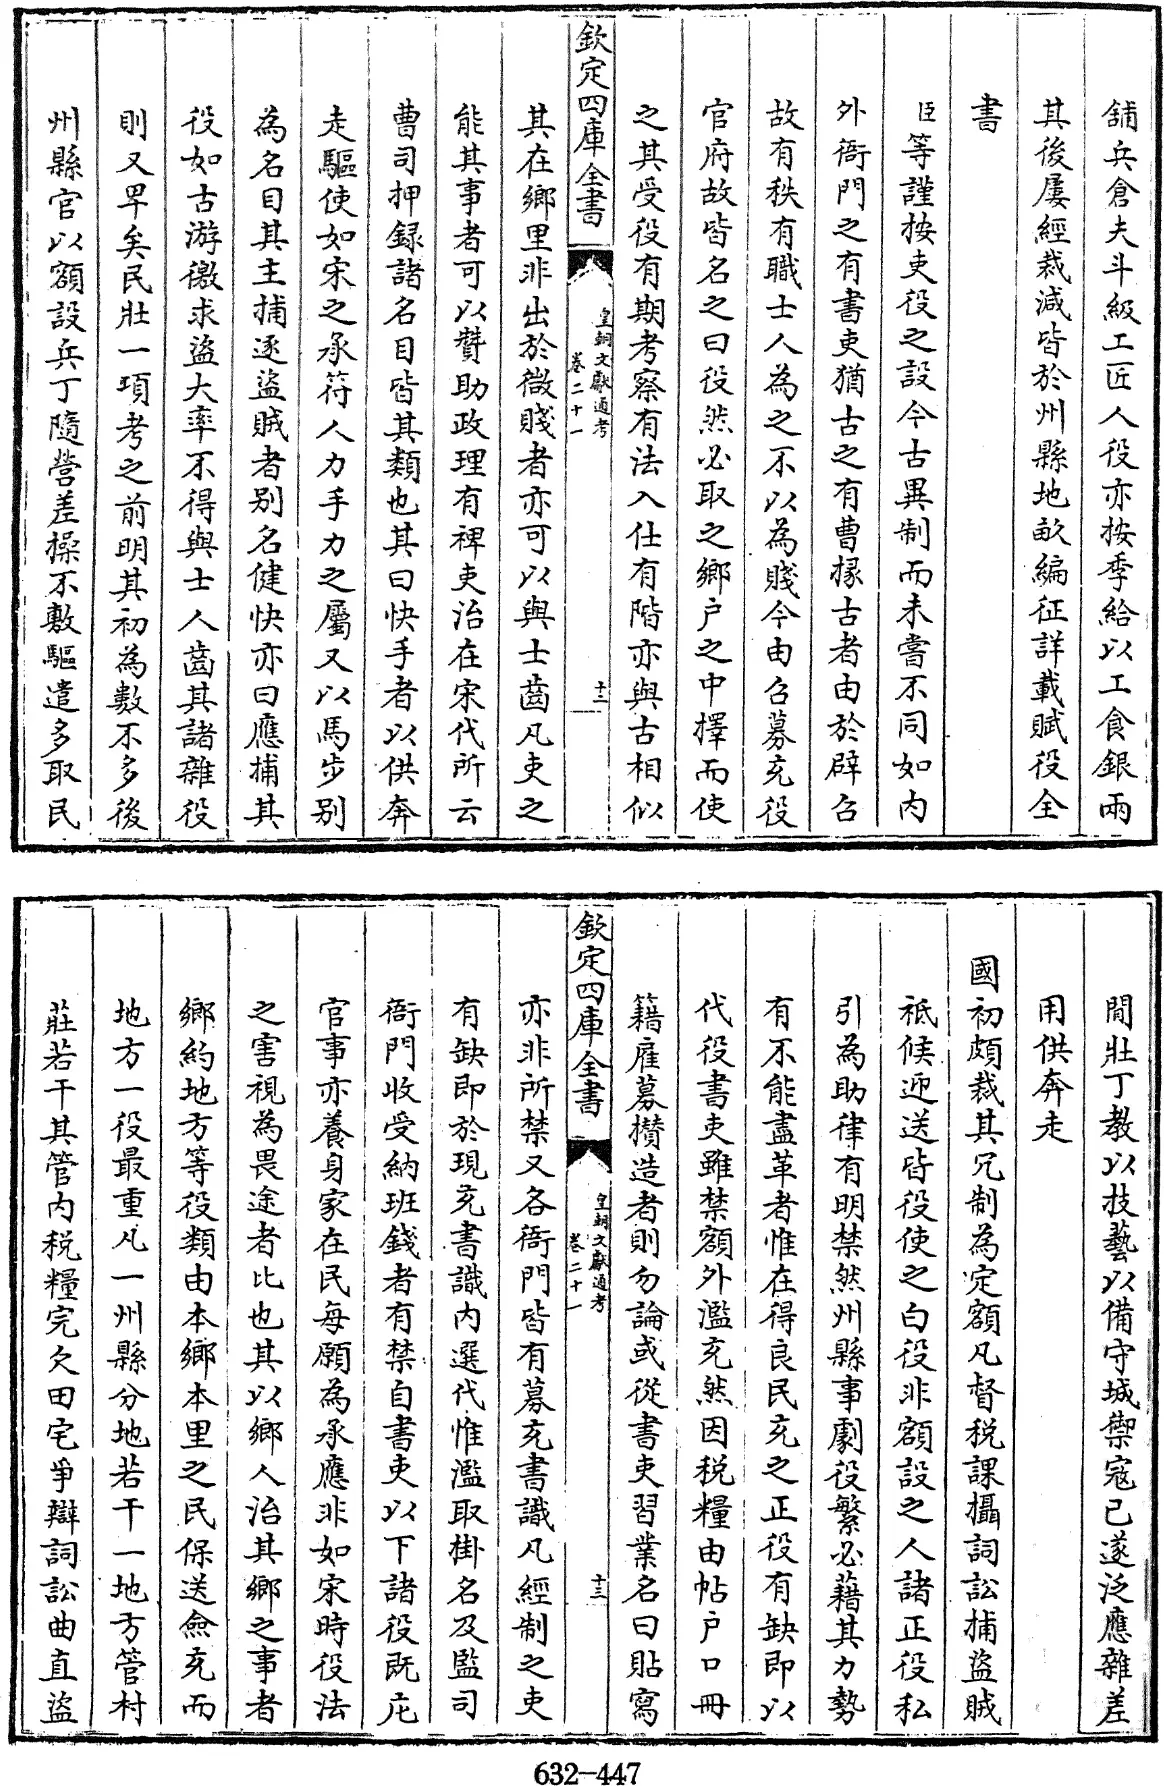 舖兵倉夫斗級工匠人役亦按季給以工食銀兩
其後屢經裁減皆於州縣地畝編征詳載賦役全
書
臣等謹按吏役之設今古異制而未嘗不同如内
外衙門之有書吏猶古之有曹掾古者由於辟召
故有秩有職士人為之不以為賤今由召募充役
官府故皆名之曰役然必取之鄉户之中擇而使
之其受役有期考察有法入仕有階亦與古相似
欽定四庫全書
皇朝文獻通考
卷二十一
十二
其在鄉里非出於微賤者亦可以與士齒凡吏之
能其事者可以贊助政理有裨吏治在宋代所云
曹司押録諸名目皆其類也其曰快手者以供奔
走驅使如宋之承符人力手力之屬又以馬步别
為名目其主捕逐盜賊者别名健快亦曰應捕其
役如古游徼求盜大率不得與士人齒其諸雜役
則又卑矣民壯一項考之前明其初為數不多後
州縣官以額設兵丁隨營差操不敷驅遣多取民
間壯丁教以技藝以備守城禦寇已遂泛應雜差
用供奔走
國初頗裁其冗制為定額凡督税課攝詞訟捕盜賊
祗候迎送皆役使之白役非額設之人諸正役私
引為助律有明禁然州縣事劇役繁必藉其力勢
有不能盡革者惟在得良民充之正役有缺即以
代役書吏雖禁額外濫充然因税糧由帖户口冊
籍雇募攅造者則勿論或從書吏習業名曰貼寫
欽定四庫全書
皇朝文獻通考
卷二十一
十三
亦非所禁又各衙門皆有募充書識凡經制之吏
有缺即於現充書識内選代惟濫取掛名及監司
衙門收受納班錢者有禁自書吏以下諸役既庀
官事亦養身家在民每願為承應非如宋時役法
之害視為畏途者比也其以鄉人治其鄉之事者
鄉約地方等役類由本鄉本里之民保送僉充而
地方一役最重凡一州縣分地若干一地方管村
莊若干其管内税糧完欠田宅爭辯詞訟曲直盜
632-447